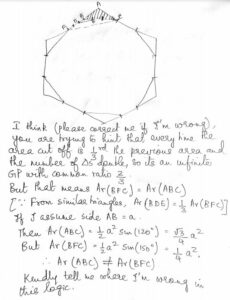 A
I think (please correct me if I'm wrong),
you are trying to hint that every time the
area cut off is 1/3 rd the previous area and
the number of Δs double, so its an infinite
GP with common ratio 2/3.
But that means Ar(BFC) = Ar(ABC)
[∵ From similar triangles, Ar(BDE) = 1/3 Ar(BFC)]
If I assume side AB = a.
Then Ar(ABC) = 1/2 a² sin(120°) = √3/4 a²
But Ar(BFC) = 1/2 a² sin(150°) = 1/4 a².
∴ Ar(ABC) ≠ Ar(BFC)
Kindly tell me where I'm wrong in
this logic.